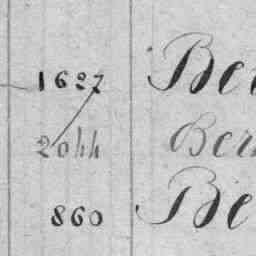 1627 Be
2044 Ber
860 Be